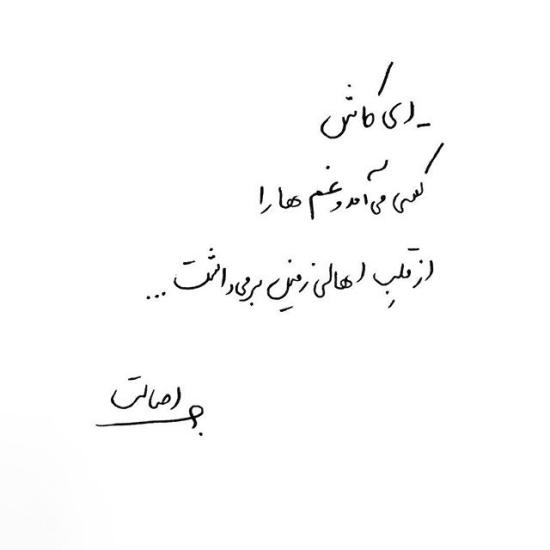 ـ ای کاش
کسی می‌آمد و غم ها را
از قلبِ اهالی زمین برمی‌داشت ...
اصالت